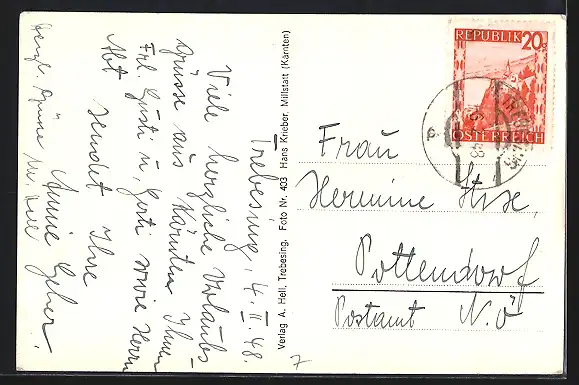 Trebesing, 4. II. 48.
Viele herzliche Urlaubs-
grüsse aus Kärnten Ihnen
Frl. Gusti u. Gerti sowie Herrn
Abt sendet Ihre
Annie Geher.
Herzl. Grüsse
Verlag A. Hell, Trebesing. Foto Nr. 403 Hans Krieber, Millstatt (Kärnten)
REPUBLIK 20g
ÖSTERREICH
48
Frau
Hermine
Pottendorf
Postamt N.Ö
7